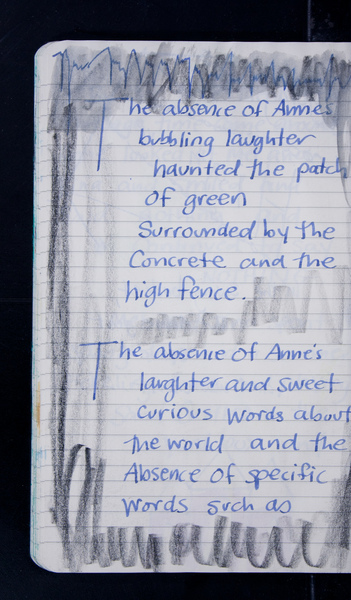 The absence of Anne's
bubbling laughter
haunted the patch
of green
Surrounded by the
Concrete and the
high fence.
The absence of Anne's
laughter and sweet
Curious words about
the world and the
Absence of specific
words such as